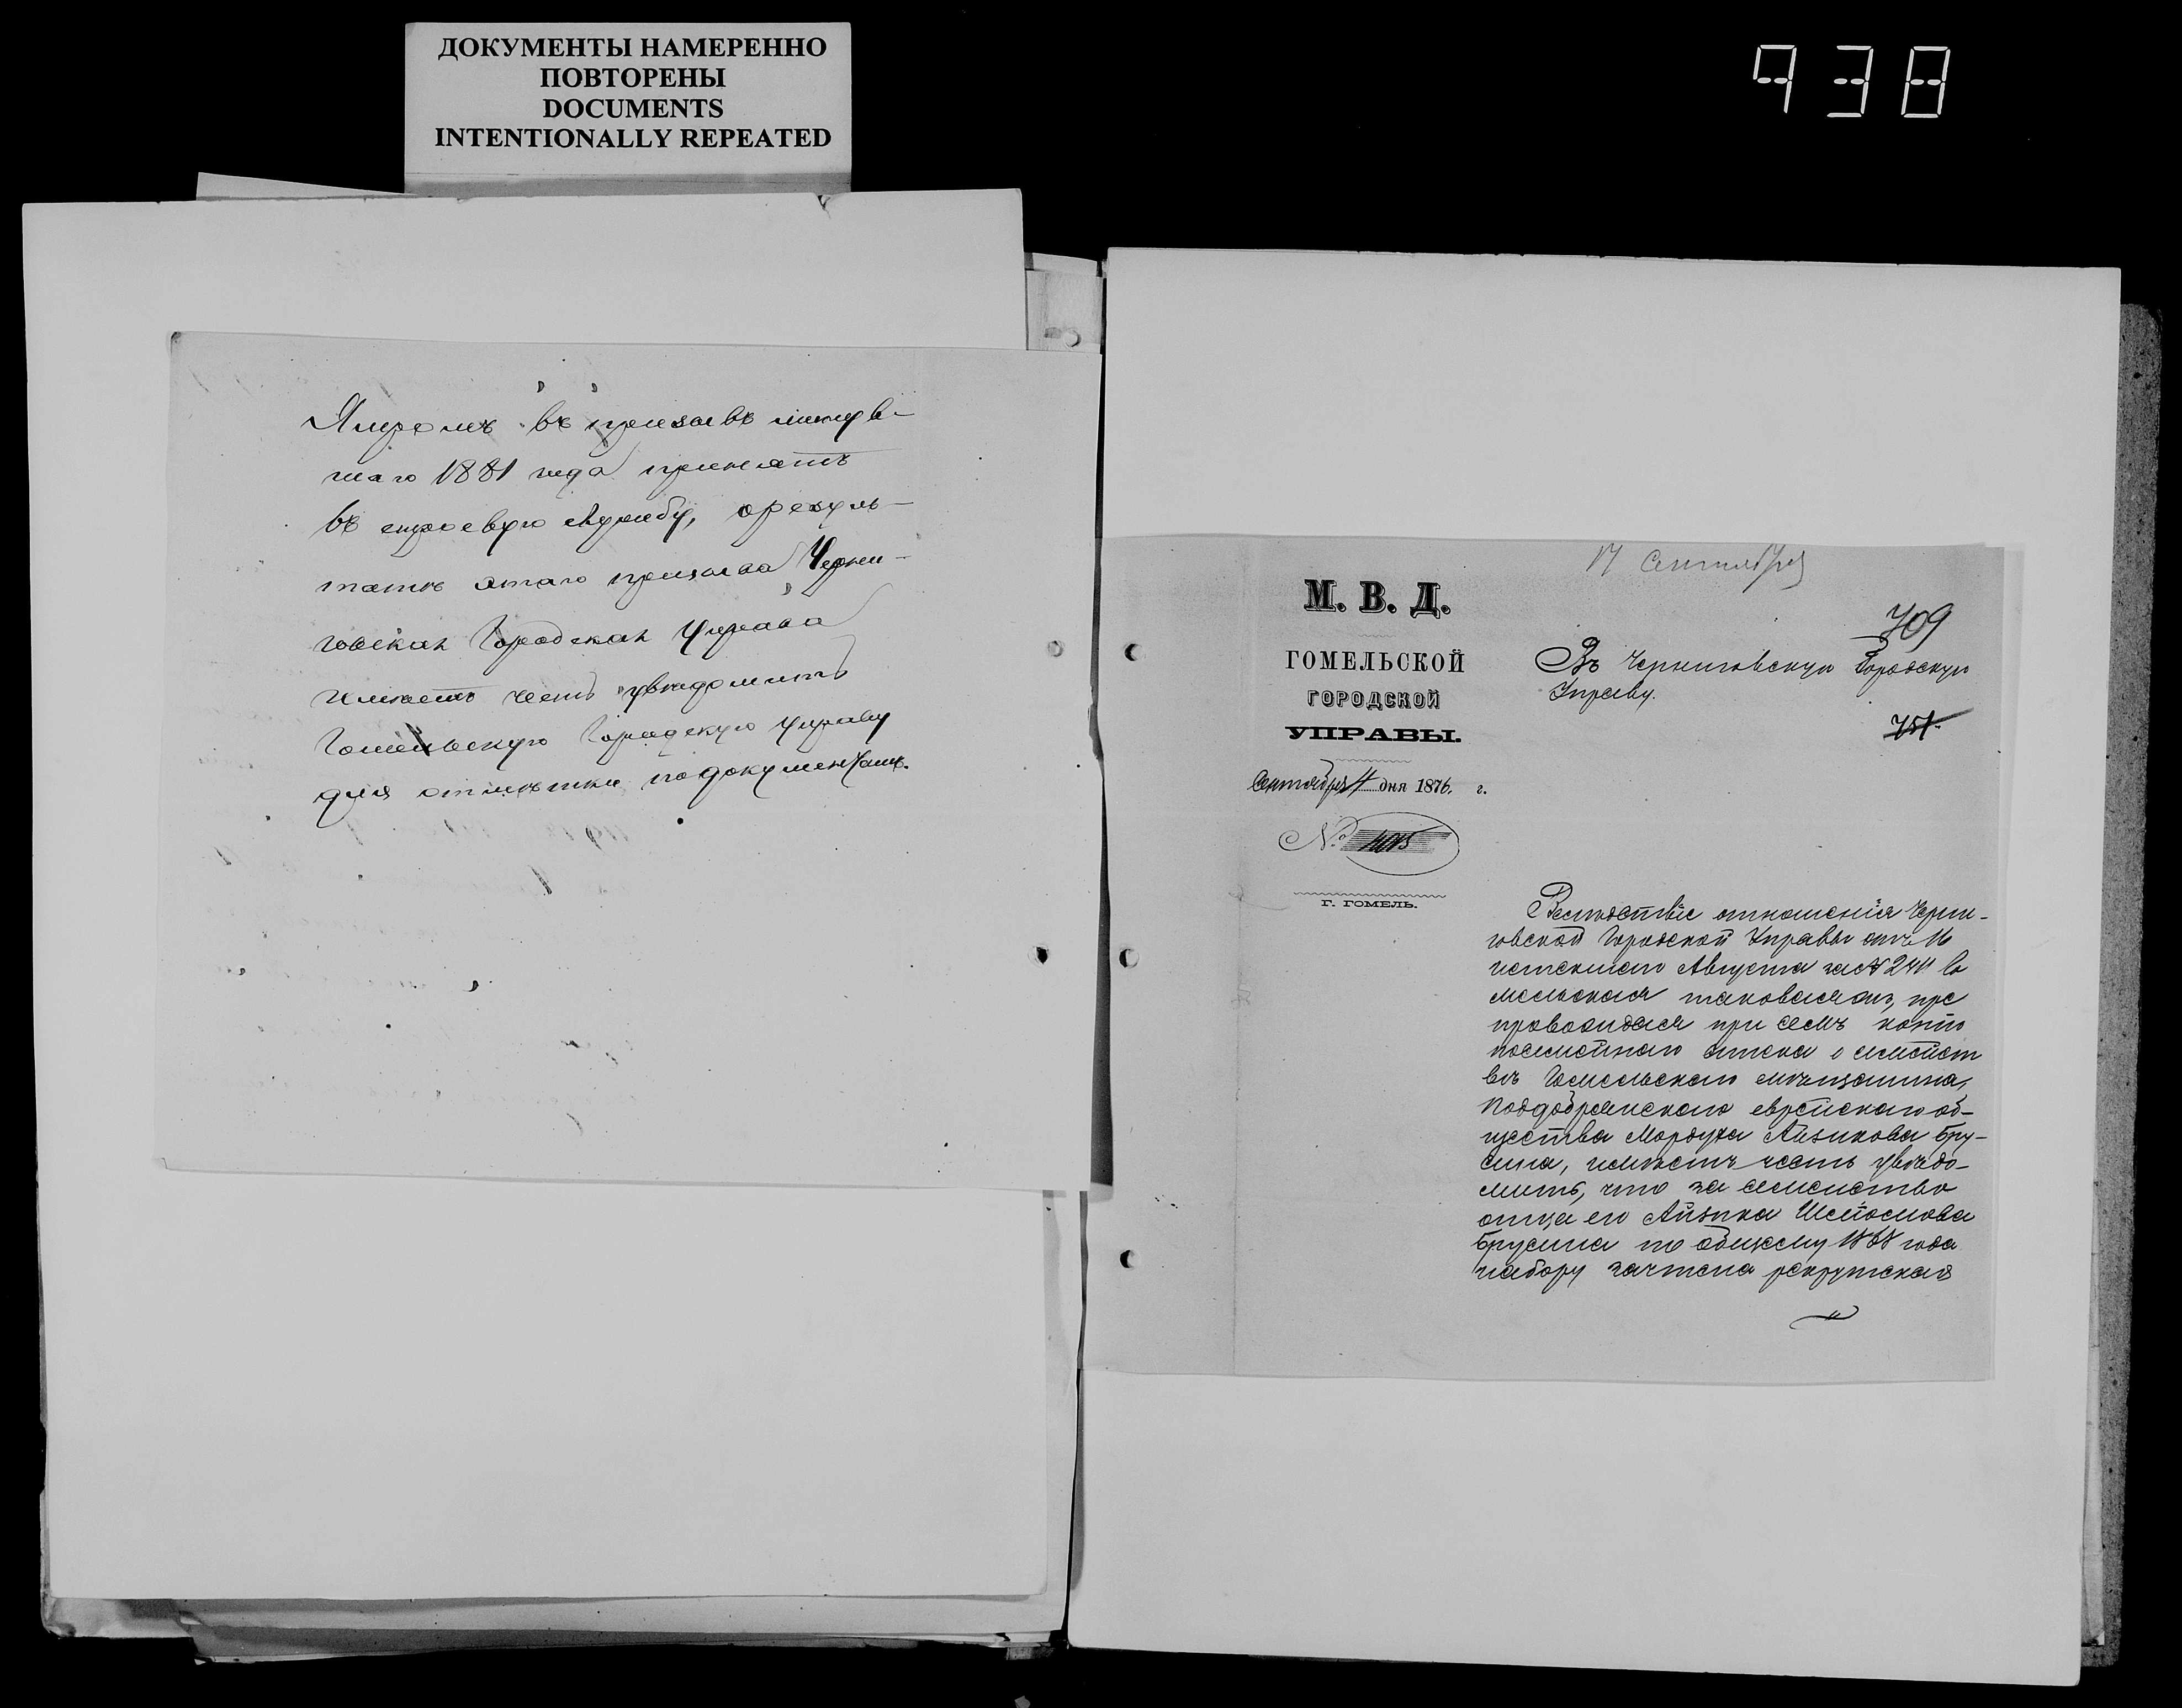 ДОКУМЕНТЫ НАМЕРЕННО
ПОВТОРЕНЫ
DOCUMENTS
INTENTIONALLY REPEATED
938
въ призывѣ минув-
шаго 1881 года принятъ
въ строевую службу, о резуль-
татѣ этаго призыва Черни-
говская Городская Управа
имѣетъ честь увѣдомить
Гомельскую Городскую Управу
для отмѣтки по документамъ.
17 Сентября
709
М. В. Д.
ГОМЕЛЬСКОЙ
ГОРОДСКОЙ
УПРАВЫ.
Сентября 4 дня 1876. г.
№
г. ГОМЕЛЬ.
Въ Черниговскую Городскую
Управу.
751.
Вслѣдствіе отношенія Черни-
говской Городской Управы отъ 16
истекшаго Августа за № 2411 Го
мельская таковая
препровождая при семъ копію
посемейнаго списка о семейст
вѣ Гомельскаго мѣщанина,
Поддобрянскаго еврейскаго об-
щества Мордуха Айзикова Бру-
сина, имѣетъ честь увѣдо-
мить, что за семейство
отца его Айзика
Брусина по общему 1858 года
набору зачтена рекрутская